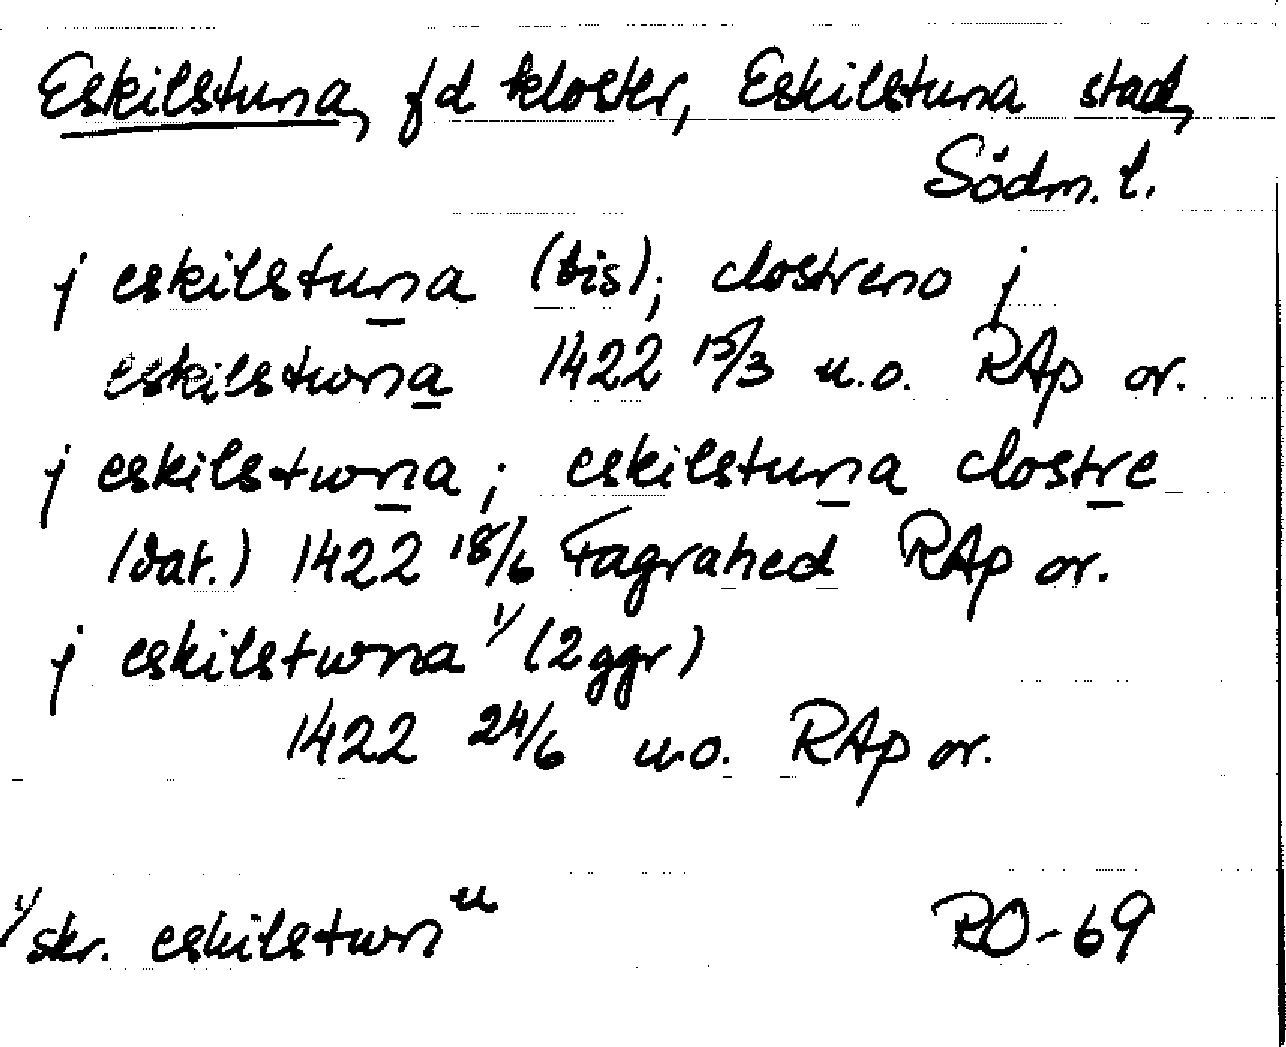 Eskilstuna, fd kloster, Eskilstuna stad,
Södm. l.
j eskilstuna (bis); clostreno j
eskilstwna 1422 15/3 u.o. RAp or.
j eskilstwna; eskilstuna clostre
(dat.) 1422 18/6 Fagrahed RAp or.
j eskilstwna 1/ (2 ggr)
1422 24/6 u.o. RAp or.
1/ skr. eskilstwn u
RO-69